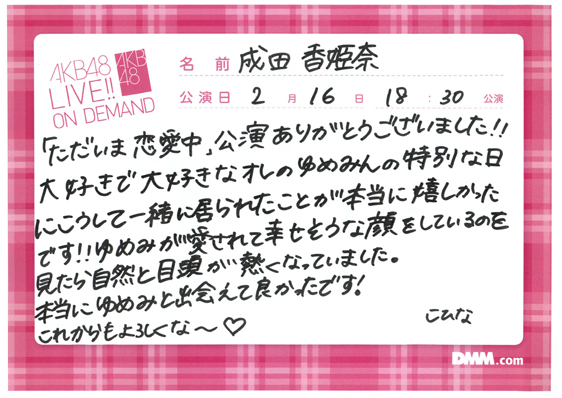 AKB48
LIVE!!
ON DEMAND
AKB
48
名前 成田 香姫奈
公演日 2月 16日 18:30公演
「ただいま恋愛中」公演ありがとうございました!!
大好きで大好きなオレのゆめみんの特別な日
にこうして一緒に居られたことが本当に嬉しかった
です!!ゆめみが愛されて幸せそうな顔をしているのを
見たら自然と目頭が熱くなっていました。
本当にゆめみと出会えて良かったです!
これからもよろしくな〜♡
こひな
DMM.com